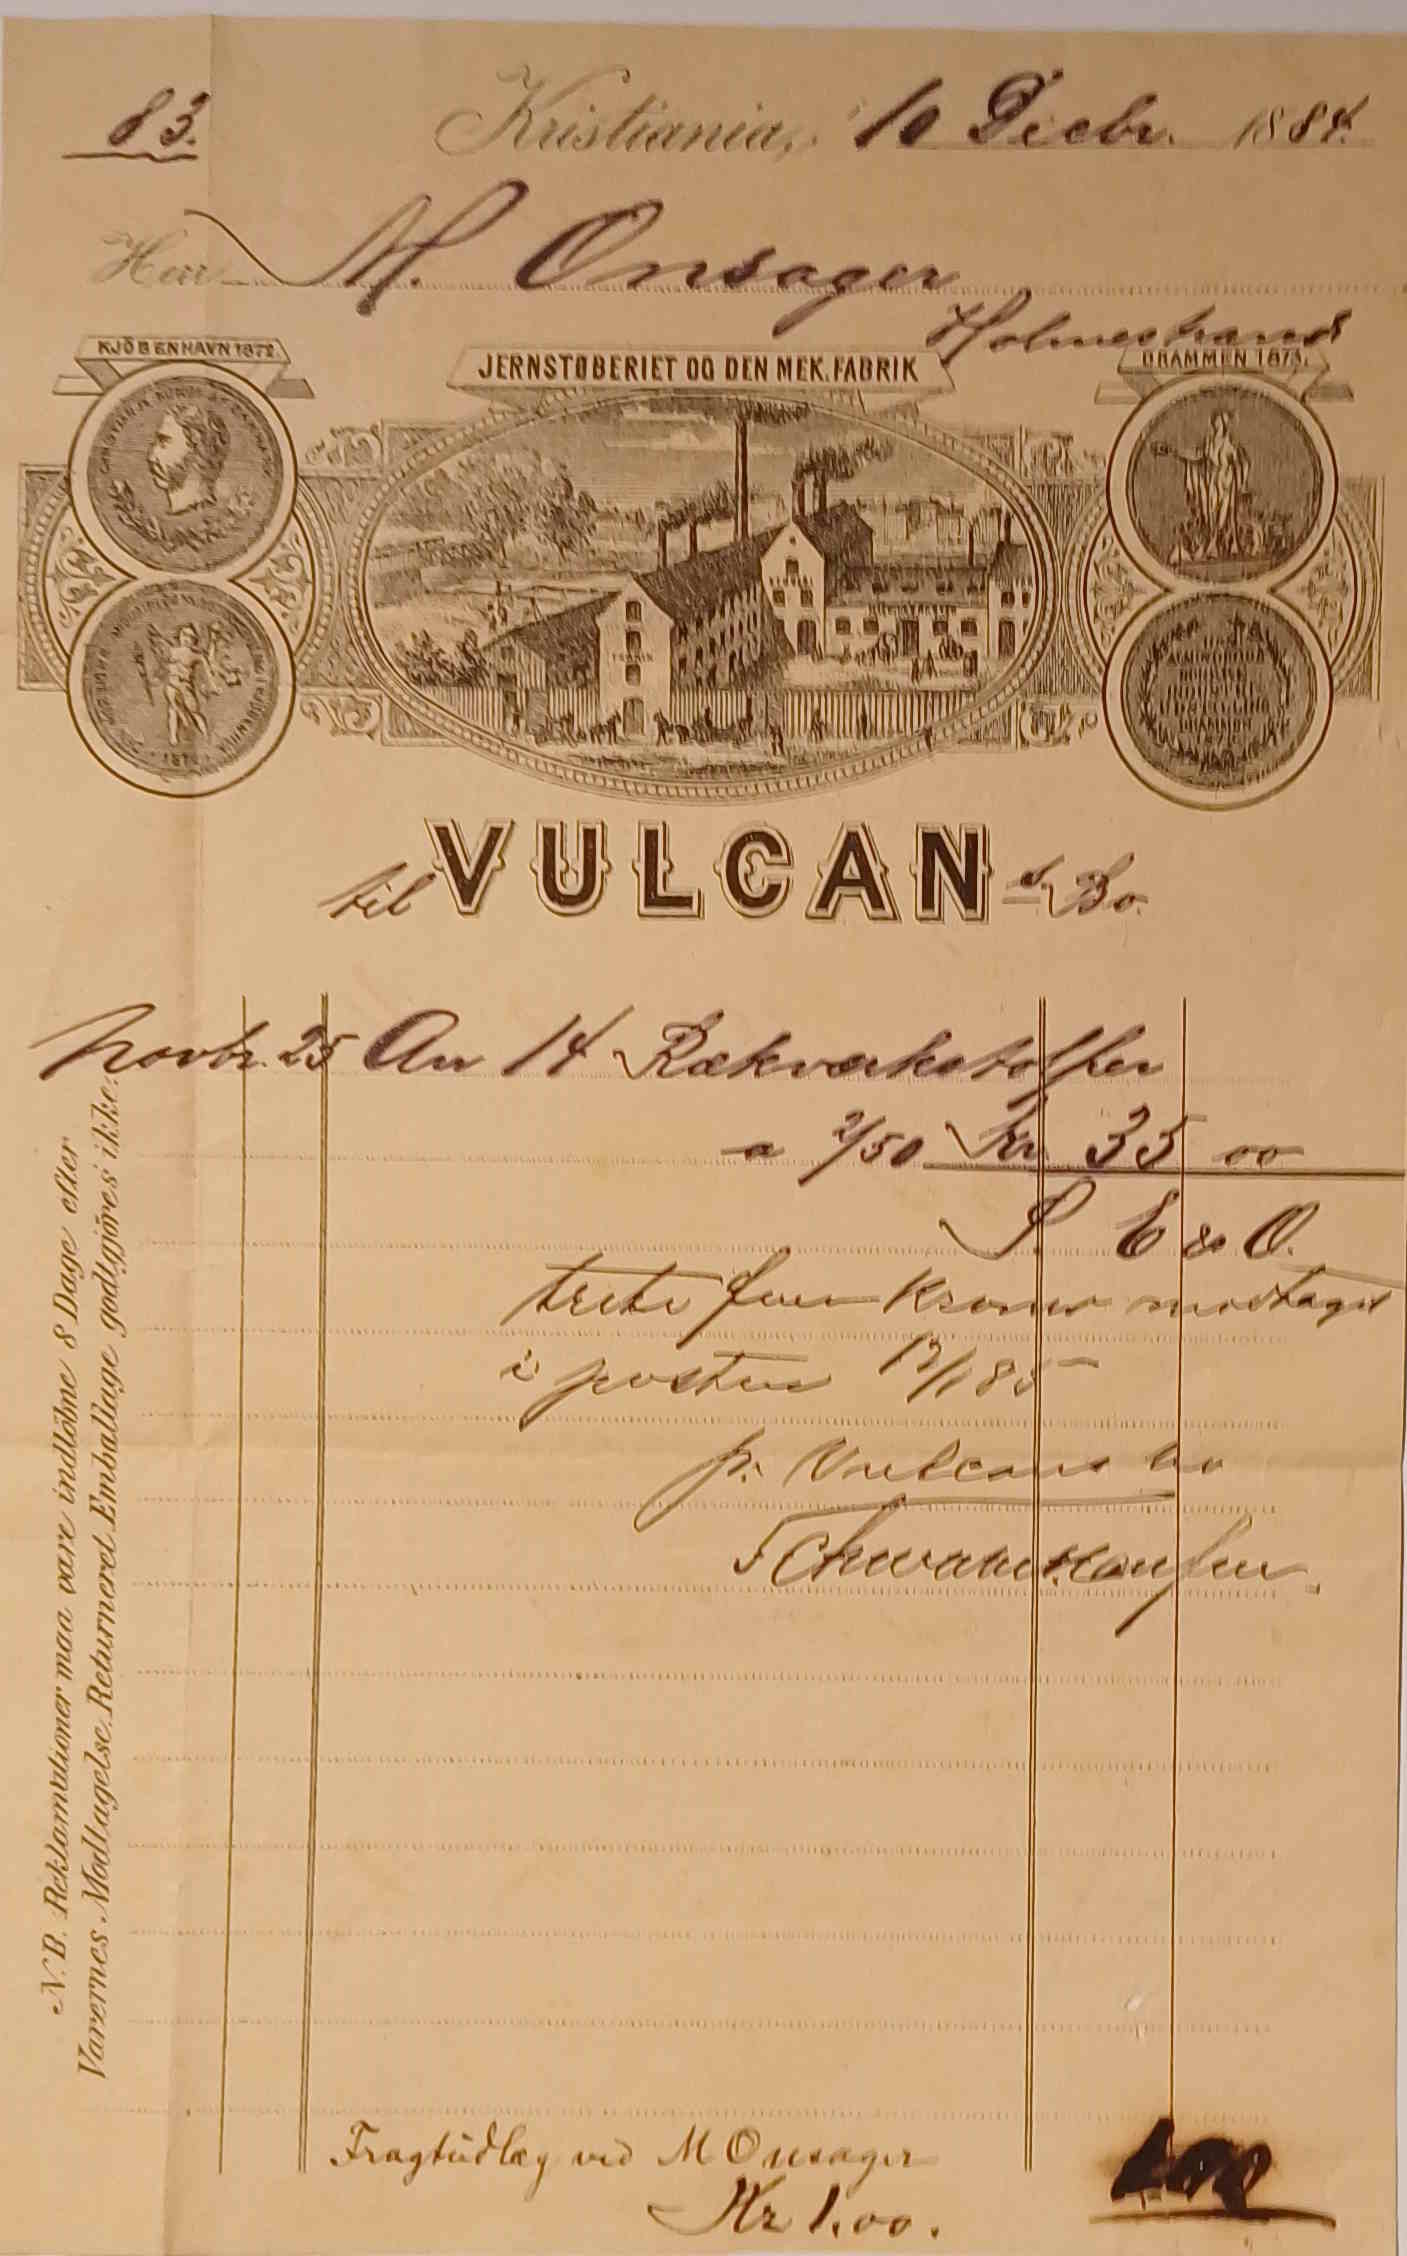 83.
Kristiania, 10 Decbr. 1884.
Herr M. Onsager
Holmestrand
KJÖBENHAVN 1872.
JERNSTØBERIET OG DEN MEK. FABRIK
DRAMMEN 1873.
INDUSTRI
UDSTILLING
DRAMMEN
til VULCAN s Bo.
Novbr. 25 An 14 Rækværkstolper
a 2/50 Kr 35 00
S. E & O.
treti fem Kroner modtaget
i posten 12/1 85
p. Vulcans bo
N.B. Reklamationer maa være indløbne 8 Dage efter
Varernes Modtagelse. Returneret Emballage godtgjøres ikke.
Fragtudlæg ved M Onsager
Kr 1.00.
1.00